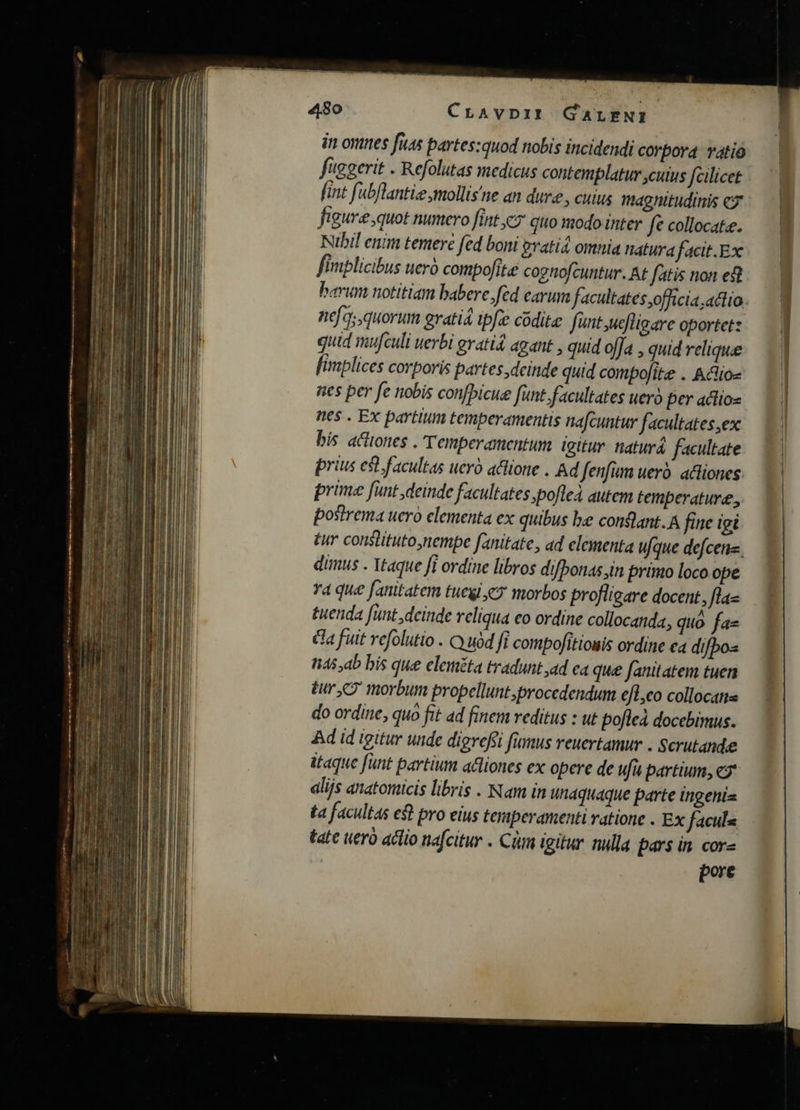 480 CLAVDII GALENI
in omnes ſuas partes:quod nobis incidendi corpora ratio
ſuggerit . Reſolutas medicus contemplatur ,cuius ſcilicet
ſint ſubſtantiæ,mollis'ne an duræ, cuius magnitudinis &
figuræ,quot numero ſint,& quo modo inter ſe collocatæ.
Nihil enim temere ſed boni gratiâ omnia natura facit.Ex
ſimplicibus uerò compoſitæ cognoſcuntur. At ſatis non eſt
harum notitiam habere,ſed earum facultates,officia,actio
neſq;,quorum gratiâ ipſæ cōditæ ſunt,ueſtigare oportet:
quid muſculi uerbi gratiâ agant , quid oſſa , quid reliquæ
ſimplices corporis partes,deinde quid compoſitæ . Actio=
nes per ſe nobis conſpicuæ ſunt.facultates uerò per actio=
nes . Ex partium temperamentis naſcuntur facultates,ex
his actiones . Temperamentum igitur naturâ facultate
prius eſt.facultas uerò actione . Ad ſenſum uerò actiones
primæ ſunt,deinde facultates,poſteà autem temperaturæ,
poſtrema uerò elementa ex quibus hæ conſtant.A fine igi
tur conſtituto,nempe ſanitate, ad elementa uſque deſcen=
dimus . Itaque ſi ordine libros diſponas,in primo loco ope
ra quæ ſanitatem tueri,& morbos profligare docent, ſta=
tuenda ſunt,deinde reliqua eo ordine collocanda, quò fa=
cta fuit reſolutio . Quòd ſi compoſitionis ordine ea diſpo=
nas,ab his quæ elemēta tradunt,ad ea quæ ſanitatem tuen
tur,& morbum propellunt,procedendum eſt,eo collocan=
do ordine, quò fit ad finem reditus : ut poſteà docebimus.
Ad id igitur unde digreſſi ſumus reuertamur . Scrutandæ
itaque ſunt partium actiones ex opere de uſu partium, &
alijs anatomicis libris . Nam in unaquaque parte ingeni=
ta facultas eſt pro eius temperamenti ratione . Ex facul=
tate uerò actio naſcitur . Cùm igitur nulla pars in cor=
pore